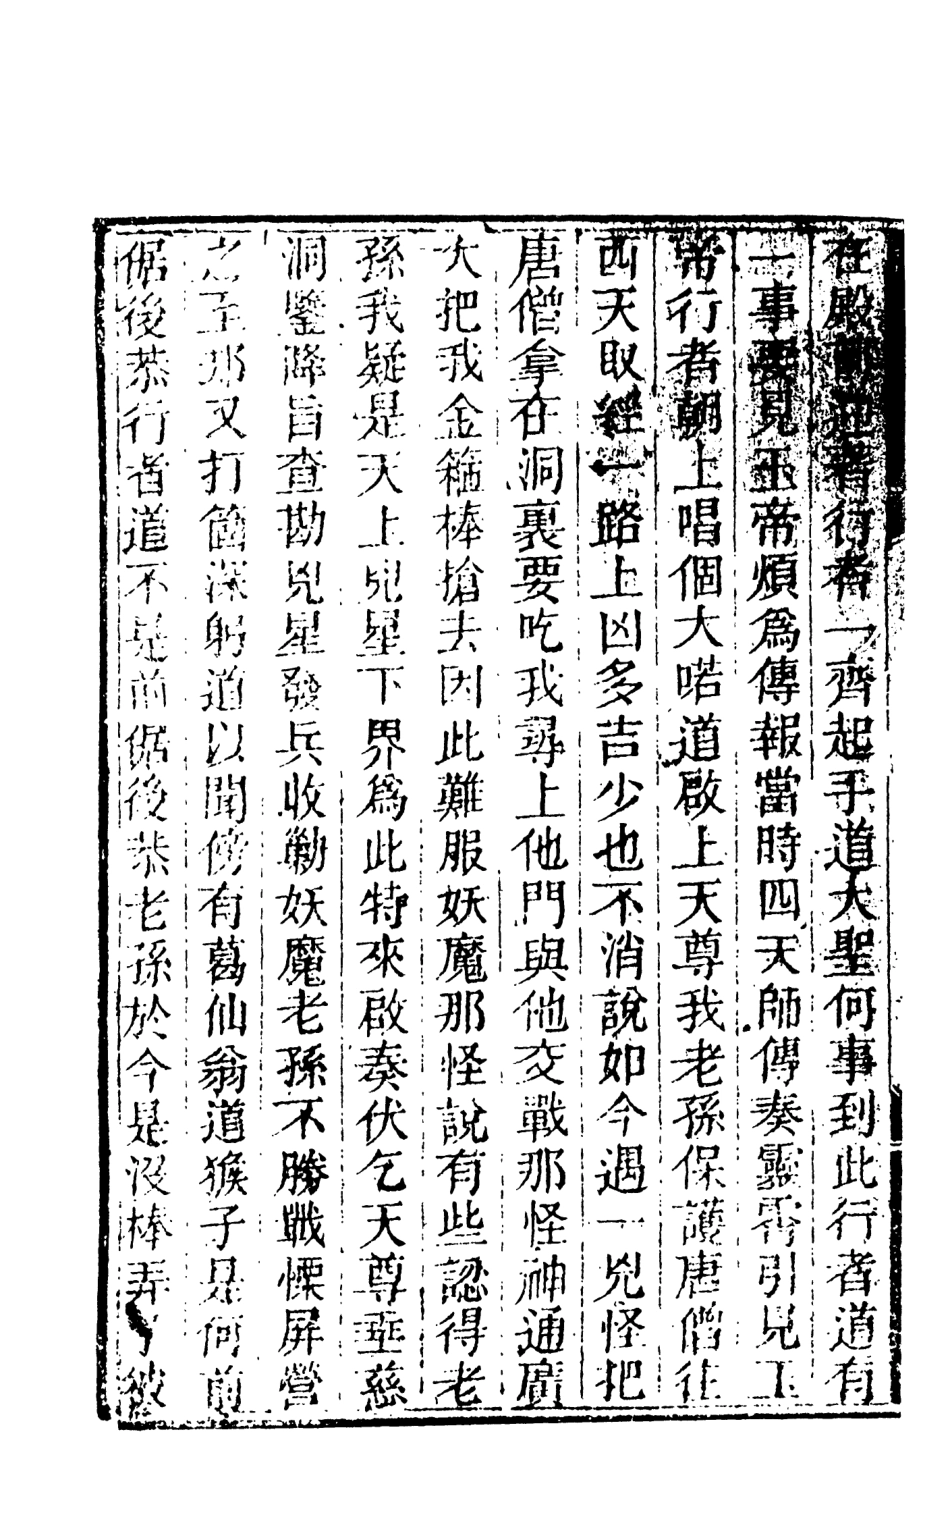 在殿前迎著行者一齊起手道大聖何事到此行者道有
一事要見玉帝煩爲傳報當時四天師傳奏靈霄引見玉
帝行者朝上唱個大喏道啟上天尊我老孫保護唐僧往
西天取經一路上凶多吉少也不消說如今遇一兕怪把
唐僧拿在洞裏要吃我尋上他門與他交戰那怪神通廣
大把我金箍棒搶去因此難服妖魔那怪說有些認得老
孫我疑是天上兕星下界爲此特來啟奏伏乞天尊垂慈
洞鑒降旨查勘兕星發兵收勦妖魔老孫不勝戰慄屏營
之至那又打箇深躬道以聞傍有葛仙翁道猴子是何前
倨後恭行者道不是前倨後恭老孫於今是沒棒弄了彼